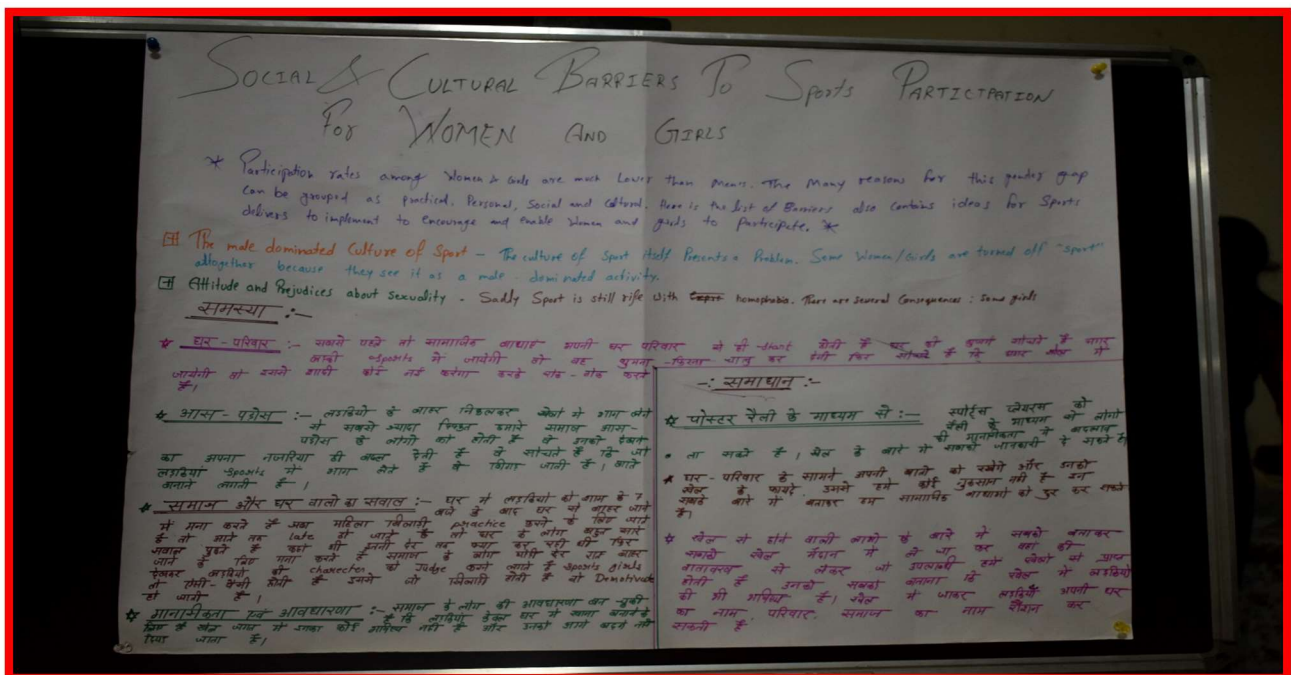 SOCIAL & CULTURAL BARRIERS To Sports PARTICTPATION
For WOMEN AND GIRLS
* Participation rates among Women & Girls are much Lower than Mens. The Many reasons for this gender gap
Can be grouped as practical, Personal, Social and Cultural. Here is the list of Barriers also Contains ideas for Sports
delivers to implement to encourage and enable Women and girls to Participate. *
The male dominated Culture of Sport – The culture of Sport itself Presents a Problem. Some Women/Girls are turned off "Sport"
altogether because they see it as a male-dominated activity.
Attitude and Prejudices about Sexuality - Sadly Sport is still rife with homophobia. There are several Consequences : Some girls
समस्या :–
घर - परिवार :– सबसे पहले तो सामाजिक अपनी घर परिवार से ही start होती है घर सोचते है अगर
लडकी sports में जायेगी तो वह घुमना-फिरना चालु कर देगी फिर सोचते है कि अगर खेल में
जायेगी तो इससे शादी कोई नई करेगा करके रोक-टोक करते
है।
–: समाधान :–
आस - पडोस :– लडकियो के बाहर निकलकर खेलो मे भाग लेने
से सबसे ज्यादा हमारे समाज आस-
पडोस के लोगो को होती है वे उनको देखने
का अपना नजरिया ही बदल देती है वे सोचते है कि जो
लडकियां sports में भाग लेते है वे बिगड जाती है। बाते
बनाने लगती है।
समाज और घर वालो का सवाल :– घर में लडकियो को शाम के 7
बजे के बाद घर से बाहर जाने
में मना करते है जब महिला खिलाडी practice करने के लिए जाते
है तो आते तक late हो जाते है तो घर के लोग बहुत सारे
सवाल पुछते है कहां थी इतनी देर तक क्या कर रही थी फिर
जाने के लिए मना करते है समाज के लोग भी देर रात बाहर
देखकर लडकियो की charecter को Judge करने लगते है sports girls
तो ऐसी-वैसी होती है इससे जो खिलाडी होती है वो Demotivate
हो जाती है।
मानसीकता एवं अवधारणा :– समाज के लोग की अवधारणा बन चुकी
है कि लडकियां केवल घर में खाना बनाने के
लिए है खेल जगत में उनका कोई भविष्य नही है और उनको आगे बढने नही
दिया जाता है।
पोस्टर रैली के माध्यम से :– स्पोर्ट्स प्लेयरस को
रैली के माध्यम से लोगो
की मानसिकता में बदलाव
ला सकते है। खेल के बारे में सबको जानकारी दे सकते है।
घर-परिवार के सामने अपनी बातो को रखेगे और उनको
खेल के फायदे, इससे हमे कोई नुकसान नही है इन
सबके बारे में बताकर हम सामाजिक बाधाओ को दुर कर सकते
है।
खेल से होने वाली लाभो के बारे में सबको बताकर
सबको खेल मैदान में ले जा कर वहां की
वातावरण से लेकर जो उपलब्धी हमे खेलो से प्राप्त
होती है उनको सबको बताना कि खेल में लडकियो
की भी भविष्य है। खेल में जाकर लडकियाँ अपनी घर
का नाम, परिवार, समाज का नाम रौशन कर
सकती है